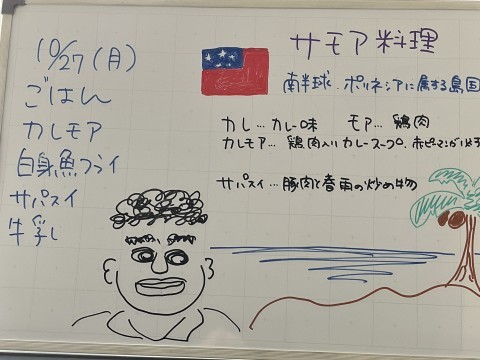 10/27(月)
ごはん
カレモア
白身魚フライ
サパスイ
牛乳
サモア料理
南半球 ポリネシアに属する島国
カレ…カレー味 モア…鶏肉
カレモア…鶏肉入りカレースープ. 赤ピーマンが必ず
サパスイ…豚肉と春雨の炒め物